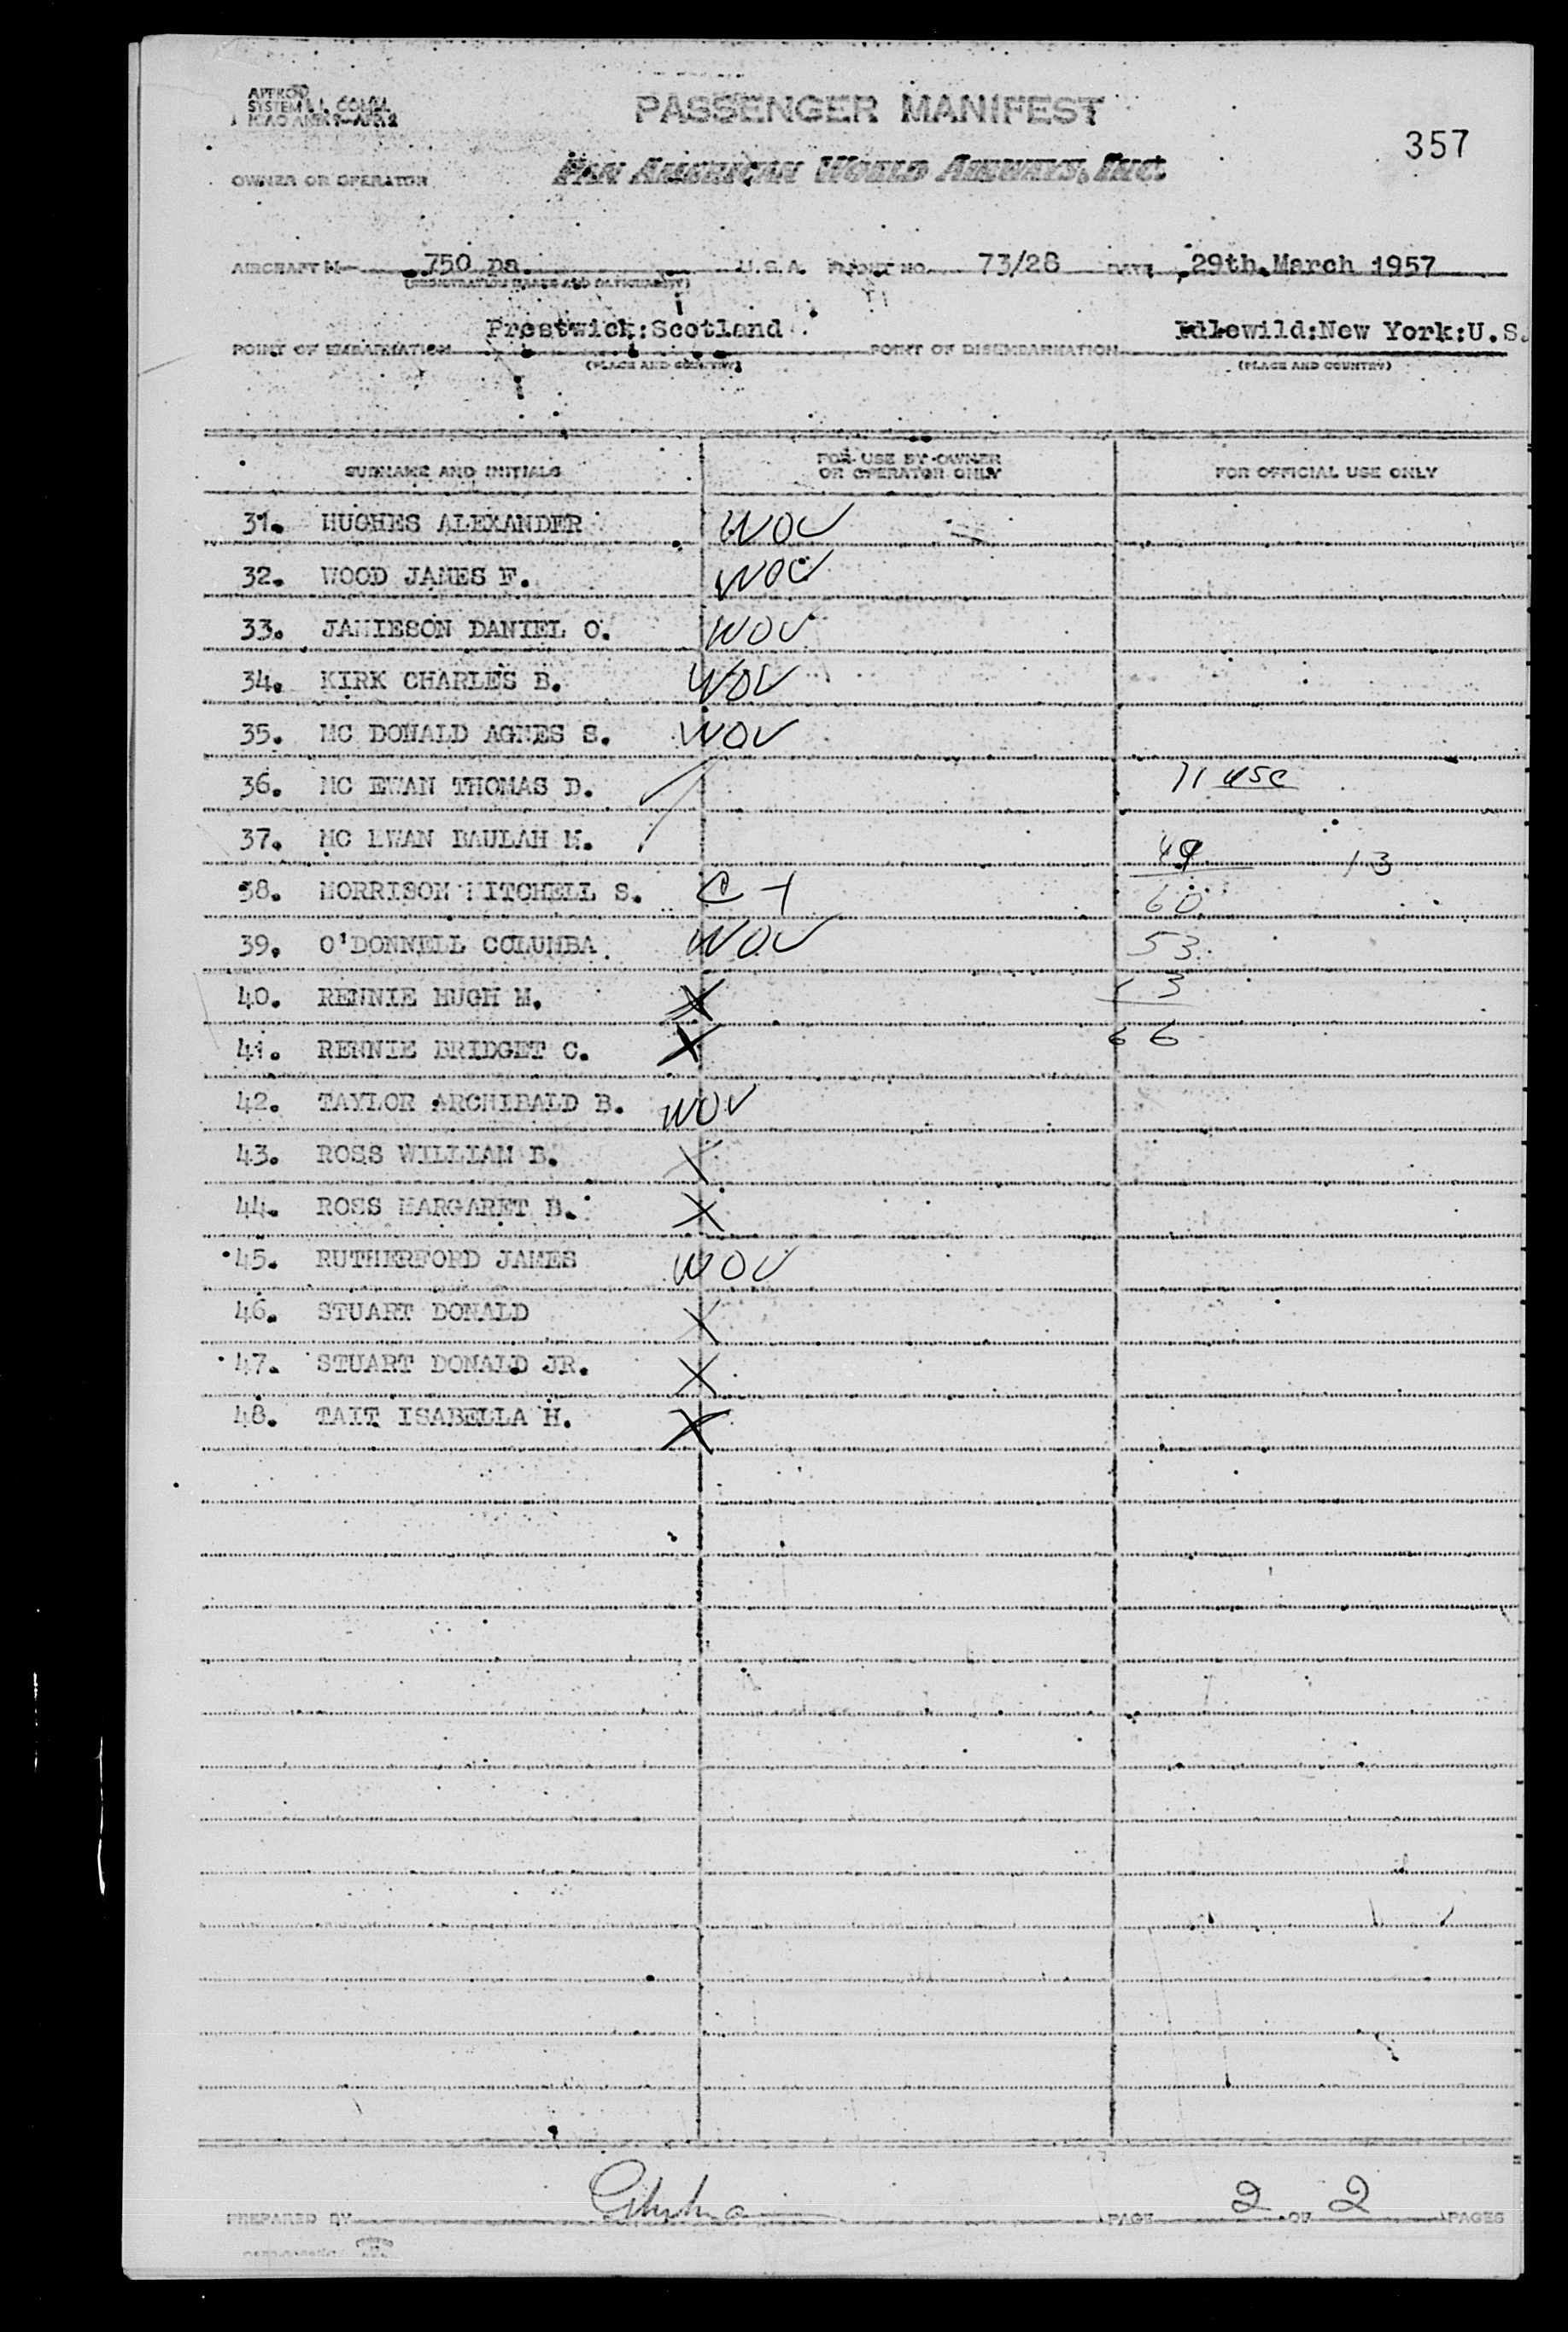 PASSENGER MANIFEST
357
PAN AMERICAN WORLD AIRWAYS, INC.
OWNER OR OPERATOR
AIRCRAFT N 750 pa. U.S.A. FLIGHT NO. 73/28 DATE 29th March 1957
(REGISTRATION MARKS AND NATIONALITY)
Prestwick:Scotland Idlewild:New York:U.S.
POINT OF EMBARKATION POINT OF DISEMBARKATION
(PLACE AND COUNTRY) (PLACE AND COUNTRY)
SURNAME AND INITIALS FOR USE BY OWNER OR OPERATOR ONLY FOR OFFICIAL USE ONLY
31. HUGHES ALEXANDER WOV
32. WOOD JAMES F. WOV
33. JAMIESON DANIEL O. WOV
34. KIRK CHARLES B. WOV
35. MC DONALD AGNES S. WOV
36. MC EWAN THOMAS D. 11 USC
37. MC EWAN BAULAH M. 49 13
38. MORRISON MITCHELL S. C 60
39. O'DONNELL COLUMBA WOV 53
40. RENNIE HUGH M. X 13
41. RENNIE BRIDGET C. X 66
42. TAYLOR ARCHIBALD B. WOV
43. ROSS WILLIAM B. X
44. ROSS MARGARET B. X
45. RUTHERFORD JAMES WOV
46. STUART DONALD X
47. STUART DONALD JR. X
48. TAIT ISABELLA H. X
PREPARED BY PAGE 2 OF 2 PAGES